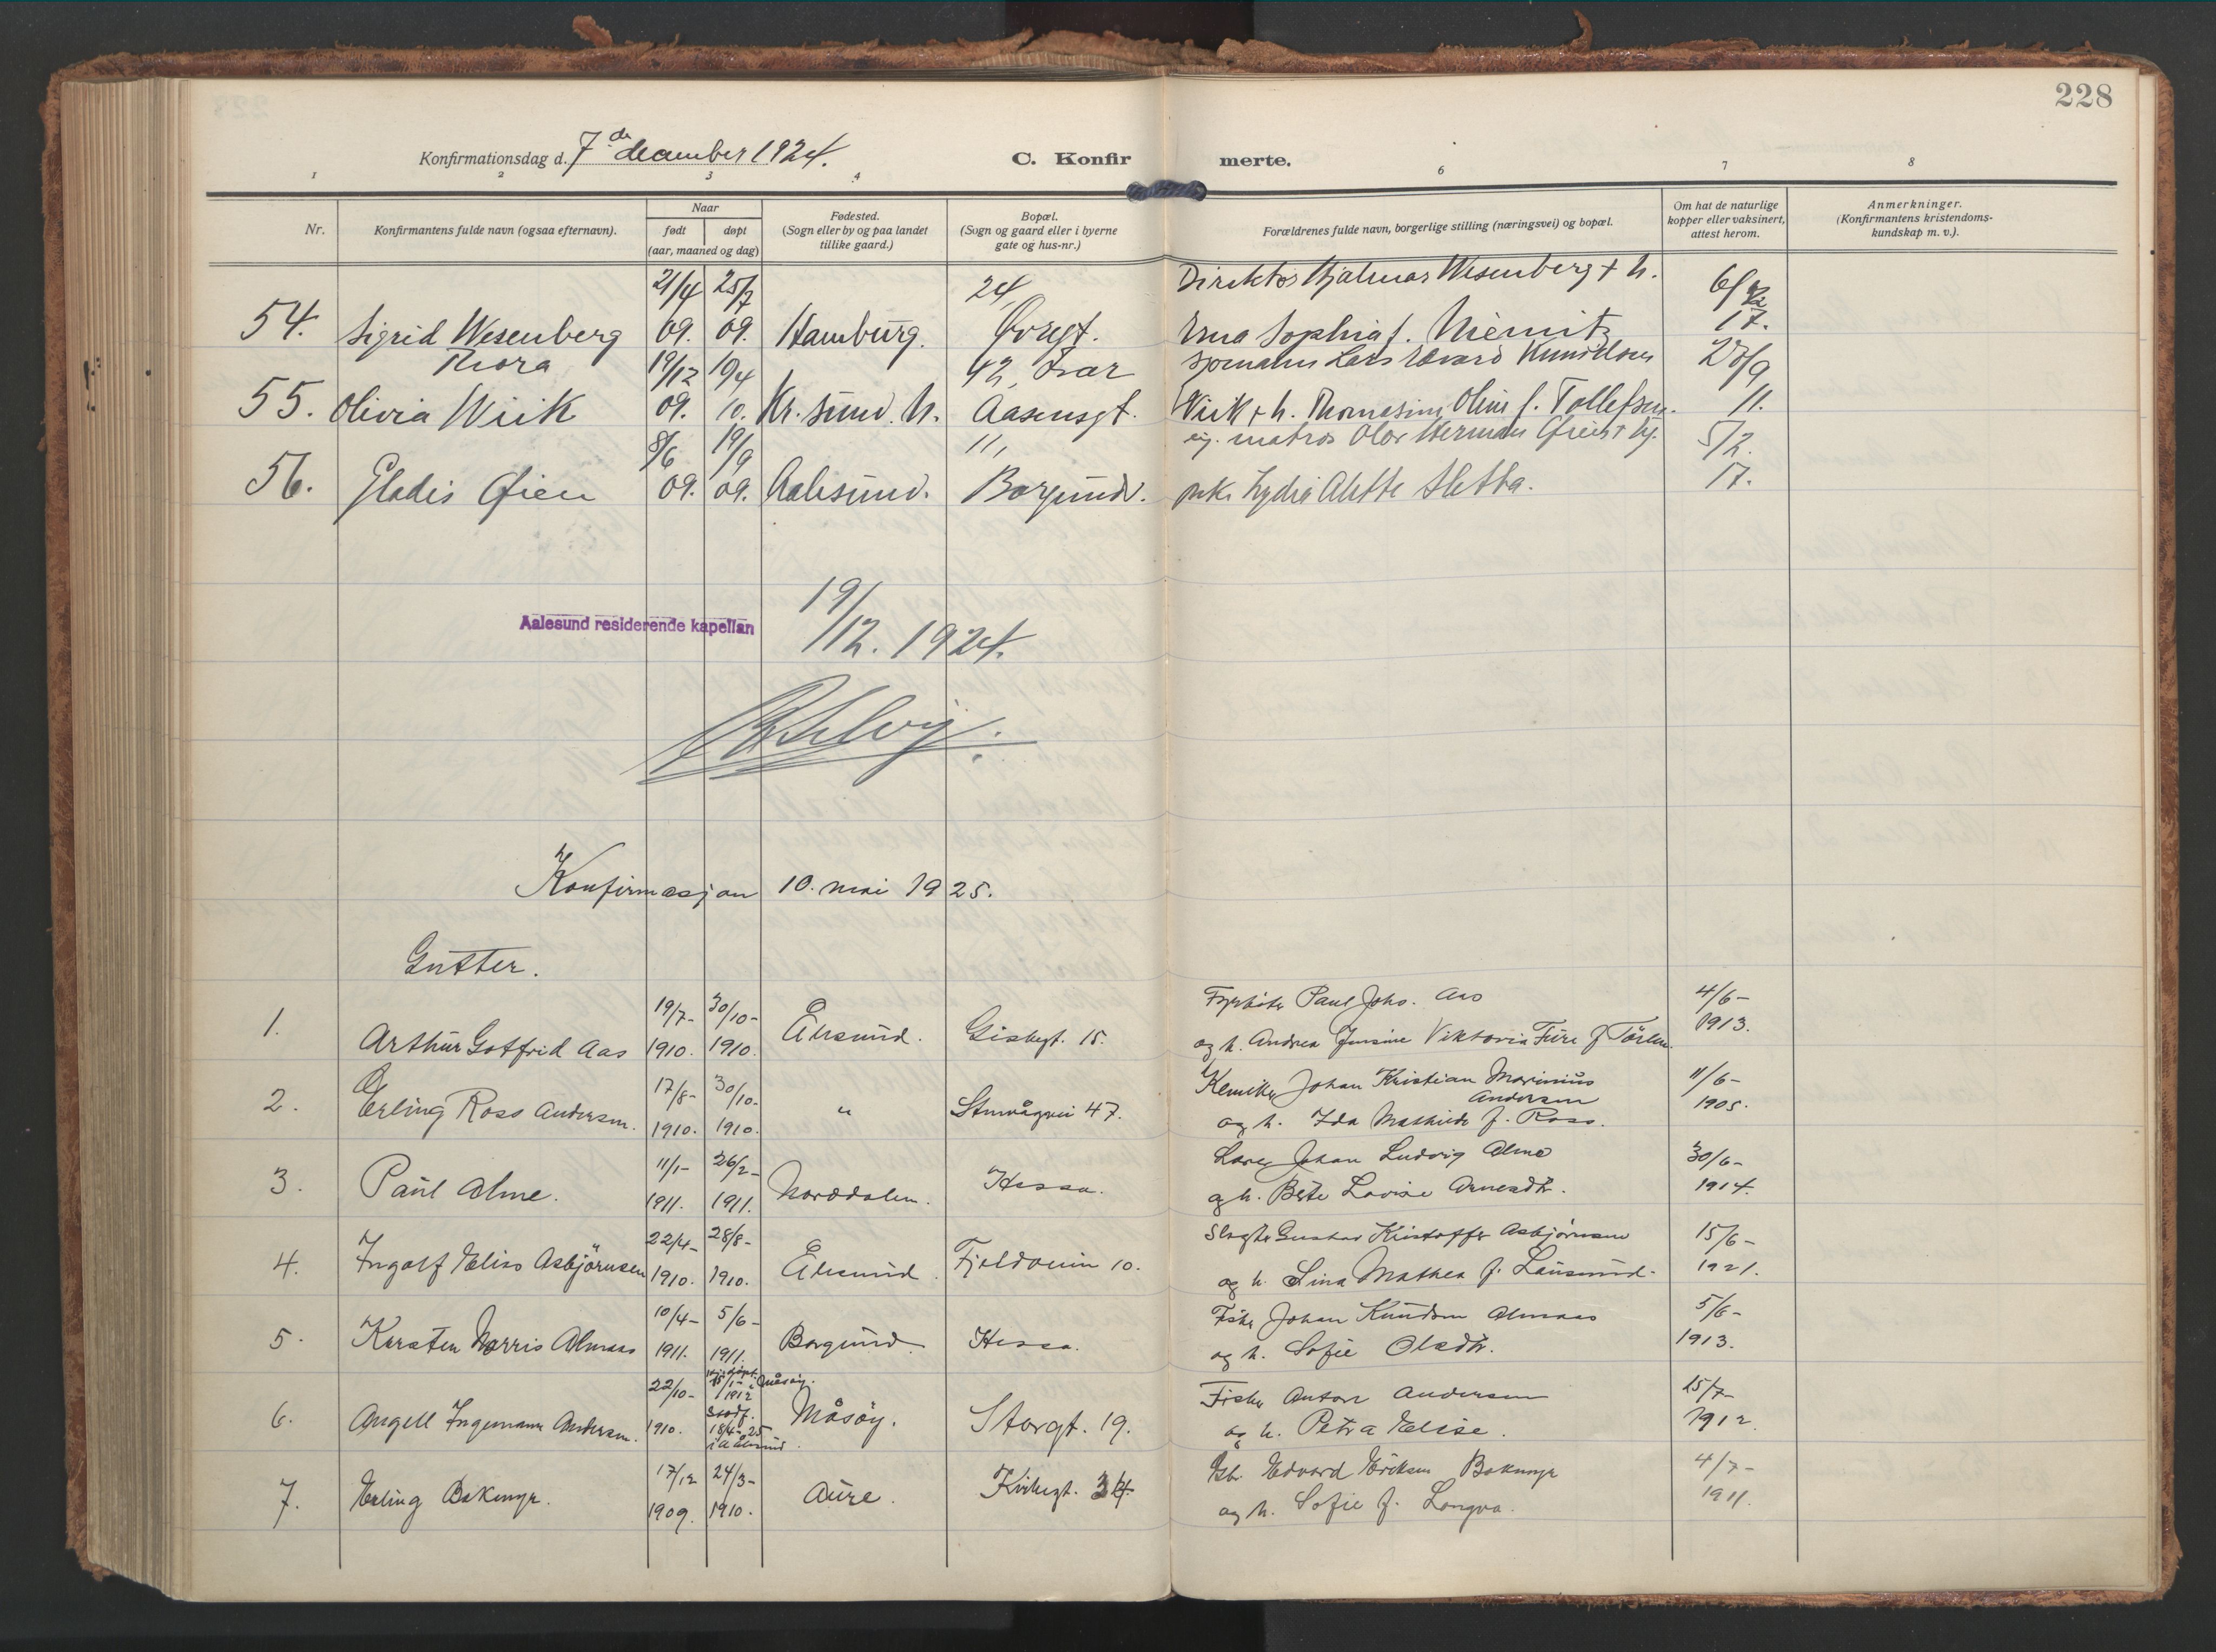 228
Konfirmationsdag d. 7de december 1924.
C. Konfir merte.
1 2 3 4 6 7 8
Nr.
Konfirmantens fulde navn (ogsaa efternavn).
Naar
født døpt
(aar, maaned og dag)
Fødested.
(Sogn eller by og paa landet
tillike gaard.)
Bopæl.
(Sogn og gaard eller i byerne
gate og hus-nr.)
Forældrenes fulde navn, borgerlige stilling (næringsvei) og bopæl.
Om hat de naturlige
kopper eller vaksinert,
attest herom.
Anmerkninger.
(Konfirmantens kristendoms-
kundskap m. v.).
21/4 25/7 24, Direktør Hjalmar Wesenberg + h. 6/
54. Sigrid Wesenberg 09. 09. Hamburg. Erna Sophia f. Niemitz 17.
Thora 19/12 10/4 42, Ivar Sjømann Lars Edvard Knudtsen 28/9
55. Olivia Wiik 09. 10. Kr.sund. N. Aasensgt. Wiik + h. Thomasine Oline f. Tollefsen. 11.
8/6 19/9 11, matros Olav Herman Øien + 5/2.
56. Gladis Øien 09. 09. Aalesund. Borgund. Lydia Alette Sletta. 17.
Aalesund residerende kapellan
19/12. 1924.
Konfirmasjon 10. mai 1925.
Gutter.
19/7- 30/10- Fyrbøter Paul Johs. Aas 4/6-
1. Arthur Gotfrid Aas 1910. 1910. Ålesund. Giskegt. 15. og h. Andrea Jensine Viktoria Fure f. 1913.
17/8- 30/10- Kemiker Johan Kristian Marinius 11/6-
2. Erling Ross Andersen. 1910. 1910. " 47. Andersen 1905.
og h. Ida Mathilde f. Ross.
11/1- 26/2- Johan Ludvig Alme 30/6-
3. Paul Alme. 1911. 1911. Norddalen. Hessa. og h. Berte Lovise Arnesdtr. 1914.
22/4- 28/8- Slagter Gustav Kristoffer Asbjørnsen 15/6-
4. Ingolf Eliss Asbjörnsen 1910. 1910. Ålesund. 10. og h. Lina Mathea f. Lausund. 1921.
10/4- 5/6- Fisker Johan Knudsen Almaas 5/6-
5. Karsten Norris Almaas 1911. 1911. Borgund. Hessa. og h. Sofie Olsdtr. 1913.
22/10- 1/1- 1912 Måsøy. Fisker Anton Andersen 15/7-
6. Angell Ingemann Andersen. 1910. Stadf. 18/4-25 i Ålesund. Måsøy. Storgt. 19. og h. Petra Elise. 1912.
17/12 24/3- Edvard Eriksen Bakmyr 4/7-
7. Erling Bakmyr. 1909. 1910. Aure. Kirkegt. 34 og h. Sofie f. Longva. 1911.